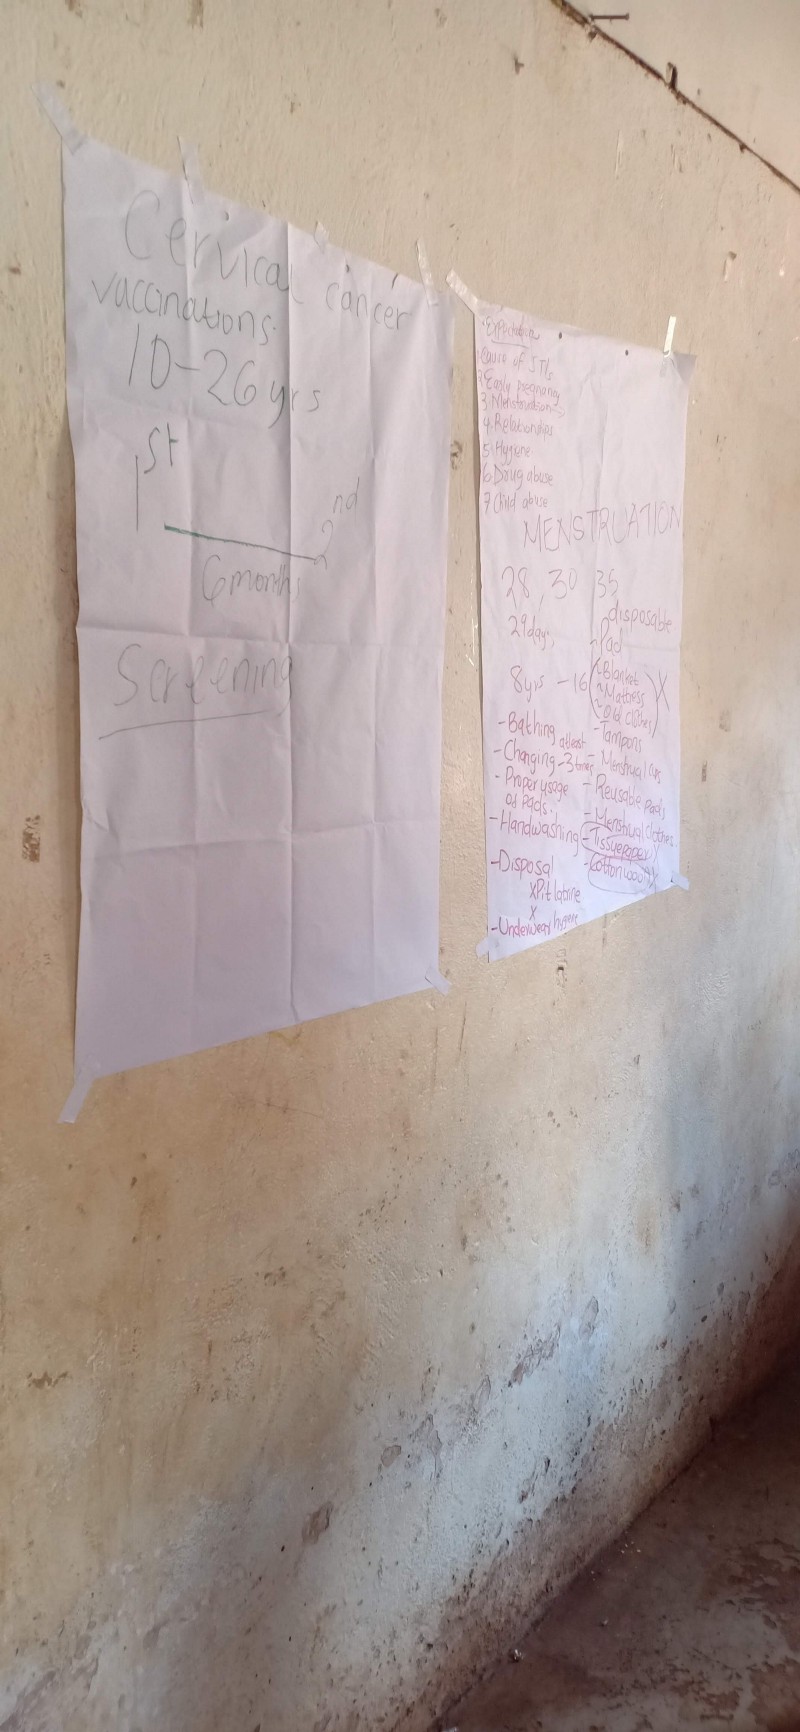 Cervical cancer
vaccinations.
10-26yrs
1st 2nd
6months
Screening
Expectation
1 Cause of STIs
2 Early pregnancy
3 Menstruation
4. Relationships
5. Hygiene
6 Drug abuse
7 Child abuse
MENSTRUATION
28, 30 35
29days
8yrs - 16
- Bathing atleast
- Changing - 3 times
- Proper usage
of pads.
- Handwashing
- Disposal
x Pit latrine
x
- Underwear hygene
disposable
- Pad
- Blanket
- Matress
- Old clothes X
- Tampons
- Menstrual cups
- Reusable pads
- Menstrual clothes
- Tissuepaper
- Cottonwool X